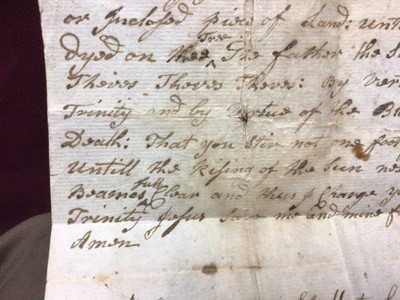 or Inclosed piece of Land: unti
dyed on the Tree The father the S
Theives Theives Theives: By Ver
Trinity and by Virtue of the B
Death: That you Stir not one foo
Untill the Rising of the Sun ne
Beames full Clear and thus I Charge y
Trinity Jesus save me and mine f
Amen